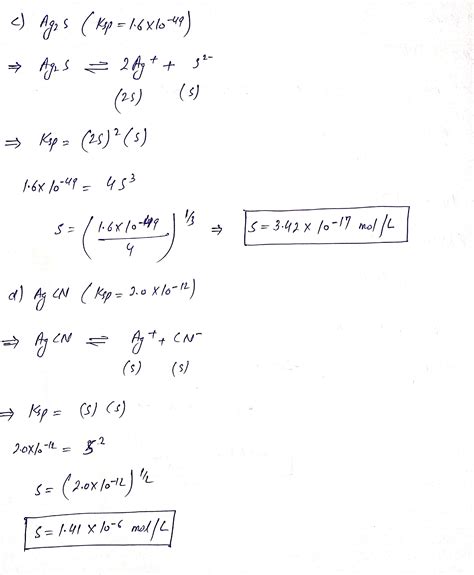 c) Ag2S (Ksp = 1.6 X 10-49)
⇒ Ag2S ⇌ 2Ag+ + S2-
(2S) (S)
⇒ Ksp = (2S)2 (S)
1.6X10-49 = 4S3
S = (1.6X10-49/4)1/3 ⇒ S = 3.42 X 10-17 mol/L
d) AgCN (Ksp = 2.0 X10-12)
⇒ AgCN ⇌ Ag+ + CN-
(S) (S)
⇒ Ksp = (S) (S)
2.0X10-12 = S2
S = (2.0X10-12)1/2
S = 1.41 X 10-6 mol/L